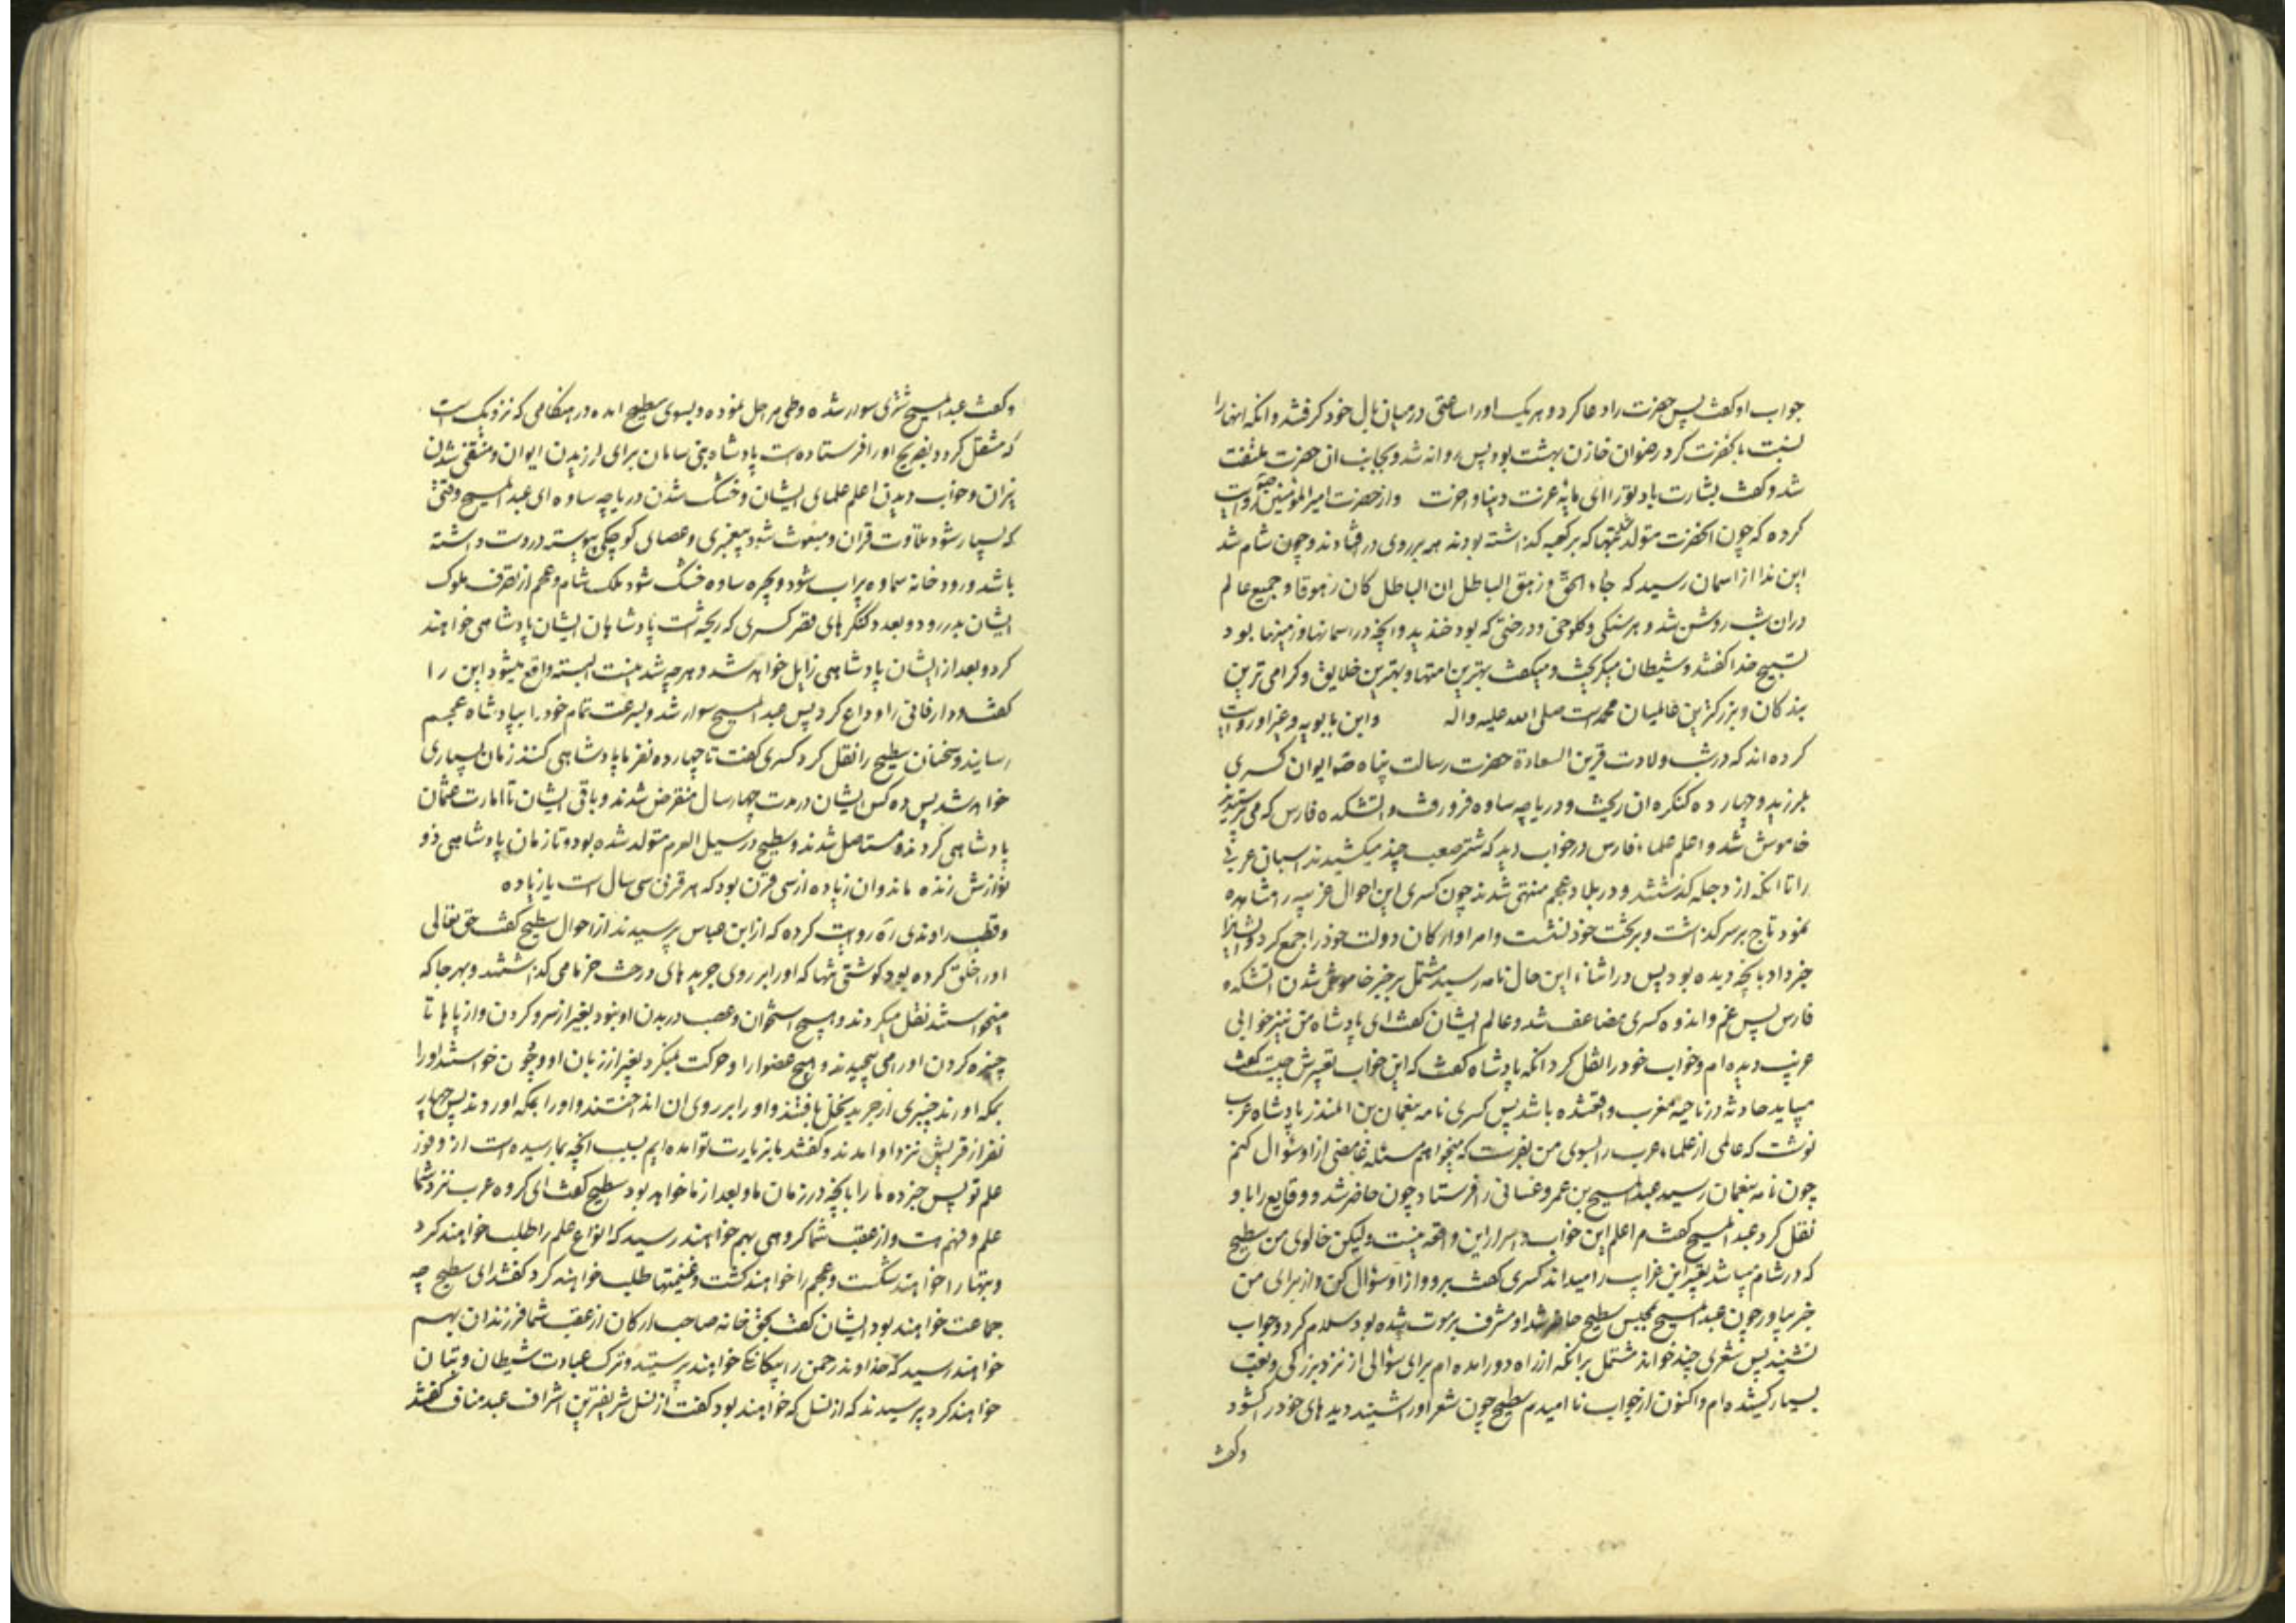 جواب او کفت پس حضرت را دعا کرد و هر یک او را ساعتی در میان بال خود کرفتند و انکه انها را
نسبت با نحضرت کرد رضوان خازن بهشت بود پس روانه شد و بجانب ان حضرت ملتفت
شد و کفت بشارت باد تو را ای مایه عزت دنیا و اخرت و از حضرت امیر المؤمنین روایت
کرده که چون انحضرت متولد بتها که بر کعبه کذاشته بودند همه بر روی در افتادند و چون شام شد
این ندا از اسمان رسید که جاء الحق و زهق الباطل ان الباطل کان زهوقا و جمیع عالم
در ان شب روشن شد و هر سنکی و کلوخی و درختی که بود خندید و انچه در اسمانها و زمینها بود
تسبیح خدا کفتند و شیطان میکریخت و میکفت بهترین امتها و بهترین خلایق و کرامی ترین
بندکان و بزرکترین عالمیان محمد است صلی الله علیه و اله و ابن بابویه و غیر او روایت
کرده اند که در شب ولادت قرین السعادة حضرت رسالت پناه ایوان کسری
بلرزید و چهارده کنکره ان ریخت و دریاچه ساوه فرو رفت و اتشکده فارس که می پرستیدند
خاموش شد و اعلم علماء فارس در خواب دید که شتر صعب چند میکشیدند اسبان عربی
را تا انکه از دجله کذشتند و در بلاد عجم منتهی شدند چون کسری این احوال غریبه را مشاهده
نمود تاج بر سر کذاشت و بر تخت خود نشست و امرا و ارکان دولت خود را جمع کرد و ایشانرا
خبر داد بانچه دیده بود پس در اثناء این حال نامه رسید مشتمل بر خبر خاموش شدن اتشکده
فارس پس غم و اندوه کسری مضاعف شد و عالم ایشان کفت ای پادشاه من نیز خوابی
غریب دیده ام و خواب خود را نقل کرد انکه پادشاه کفت که این خواب تعبیرش چیست کفت
میباید حادثه در ناحیه مغرب واقعشده باشد پس کسری نامه بنعمان بن المنذر پادشاه عرب
نوشت که عالمی از علماء عرب را بسوی من بفرست که میخواهم مسئله غامضی از او سؤال کنم
چون نامه بنعمان رسید عبد المسیح بن عمرو غسانی را فرستاد چون حاضر شد و وقایع را با و
نقل کرد عبد المسیح کفت م اعلم این خواب و اسرار این واقعه نیست ولیکن خالوی من سطیح
که در شام میباشد تعبیر این غرایب را میداند کسری کفت برو و از او سؤال کن و از برای من
خبر بیاور چون عبد المسیح بمجلس سطیح حاضر شد او مشرف بر موت شده بود سلام کرد و جواب
نشنید پس شعری چند خواند مشتمل بر انکه از راه دور امده ام برای سؤالی از نزد بزرکی و تعب
بسیار کشیده ام و اکنون از جواب نا امیدم سطیح چون شعر او را شنید دیده های خود را کشود
و کفت
و کفت عبد المسیح شتری سوار شده و طی مراحل نموده و بسوی سطیح امده در هنکامی که نزدیک است
که منتقل کردد بضریح او را فرستاده است پادشاه بنی ساسان برای لرزیدن ایوان و منتفی شدن
نیران و خواب دیدن اعلم علمای ایشان و خشک شدن دریاچه ساوه ای عبد المسیح وقتی
که بسیار شود تلاوت قران و مبعوث شود پیغمبری و عصای کوچکی پیوسته در دست داشته
باشد و رود خانه سماوه پر اب شود و بحیره ساوه خشک شود ملک شام و عجم از تصرف ملوک
ایشان بدر رود و بعدد کنکرهای قصر کسری که ریخته است پادشاهان ایشان پادشاهی خواهند
کرد و بعد از ایشان پادشاهی زایل خواهد شد و هر چه شدنیست البته واقع میشود این را
کفت و دار فانی را وداع کرد پس عبد المسیح سوار شد و بسرعت تمام خود را بپادشاه عجم
رسانید و سخنان سطیح را نقل کرد کسری کفت تا چهارده نفر ما پادشاهی کنند زمان بسیاری
خواهد شد پس ده کس ایشان در مدت چهار سال منقرض شدند و باقی ایشان تا امارت عثمان
پادشاهی کردند و مستاصل شدند و سطیح در سیل العرم متولد شده بود و تا زمان پادشاهی ذو
نوازش زنده ماند و ان زیاده از سی قرن بود که هر قرنی سی سال است یا زیاده
و قطب راوندی ره روایت کرده که از ابن عباس پرسیدند از احوال سطیح کفت حق تعالی
او را خلق کرده بود کوشتی تنها که او را بر روی جریدهای درخت خرما می کذاشتند و بهر جا که
میخواستند نقل میکردند و هیچ استخوان و عصب در بدن او نبود بغیر از سر و کردن و از پاها تا
چنبره کردن او را می پیچیدند و هیچ عضو او را حرکت نمیکرد بغیر از زبان او و چون خواستند او را
بمکه اورند چیزی از جرید نخل بافتند و او را بر روی ان انداختند و او را بمکه اوردند پس چهار
نفر از قریش نزد او امدند و کفتند ما بزیارت تو امده ایم بسبب انچه بما رسیده است از وفور
علم تو پس خبر ده ما را بانچه در زمان ما و بعد از ما خواهد بود سطیح کفت ای کروه عرب نزد شما
علم و فهم نیست و از عقب شما کروهی بهم خواهند رسید که انواع علم را طلب خواهند کرد
و بتها را خواهند شکست و عجم را خواهند کشت و غنیمتها طلب خواهند کرد کفتند ای سطیح چه
جماعت خواهند بود ایشان کفت بحق خانه صاحب ارکان از عقب شما فرزندان بهم
خواهند رسید که خداوند رحمن را بیکانکی خواهند پرستید و ترک عبادت شیطان و بتان
خواهند کرد پرسیدند که از نسل که خواهند بود کفت از نسل شریفترین اشراف عبد مناف کفتند